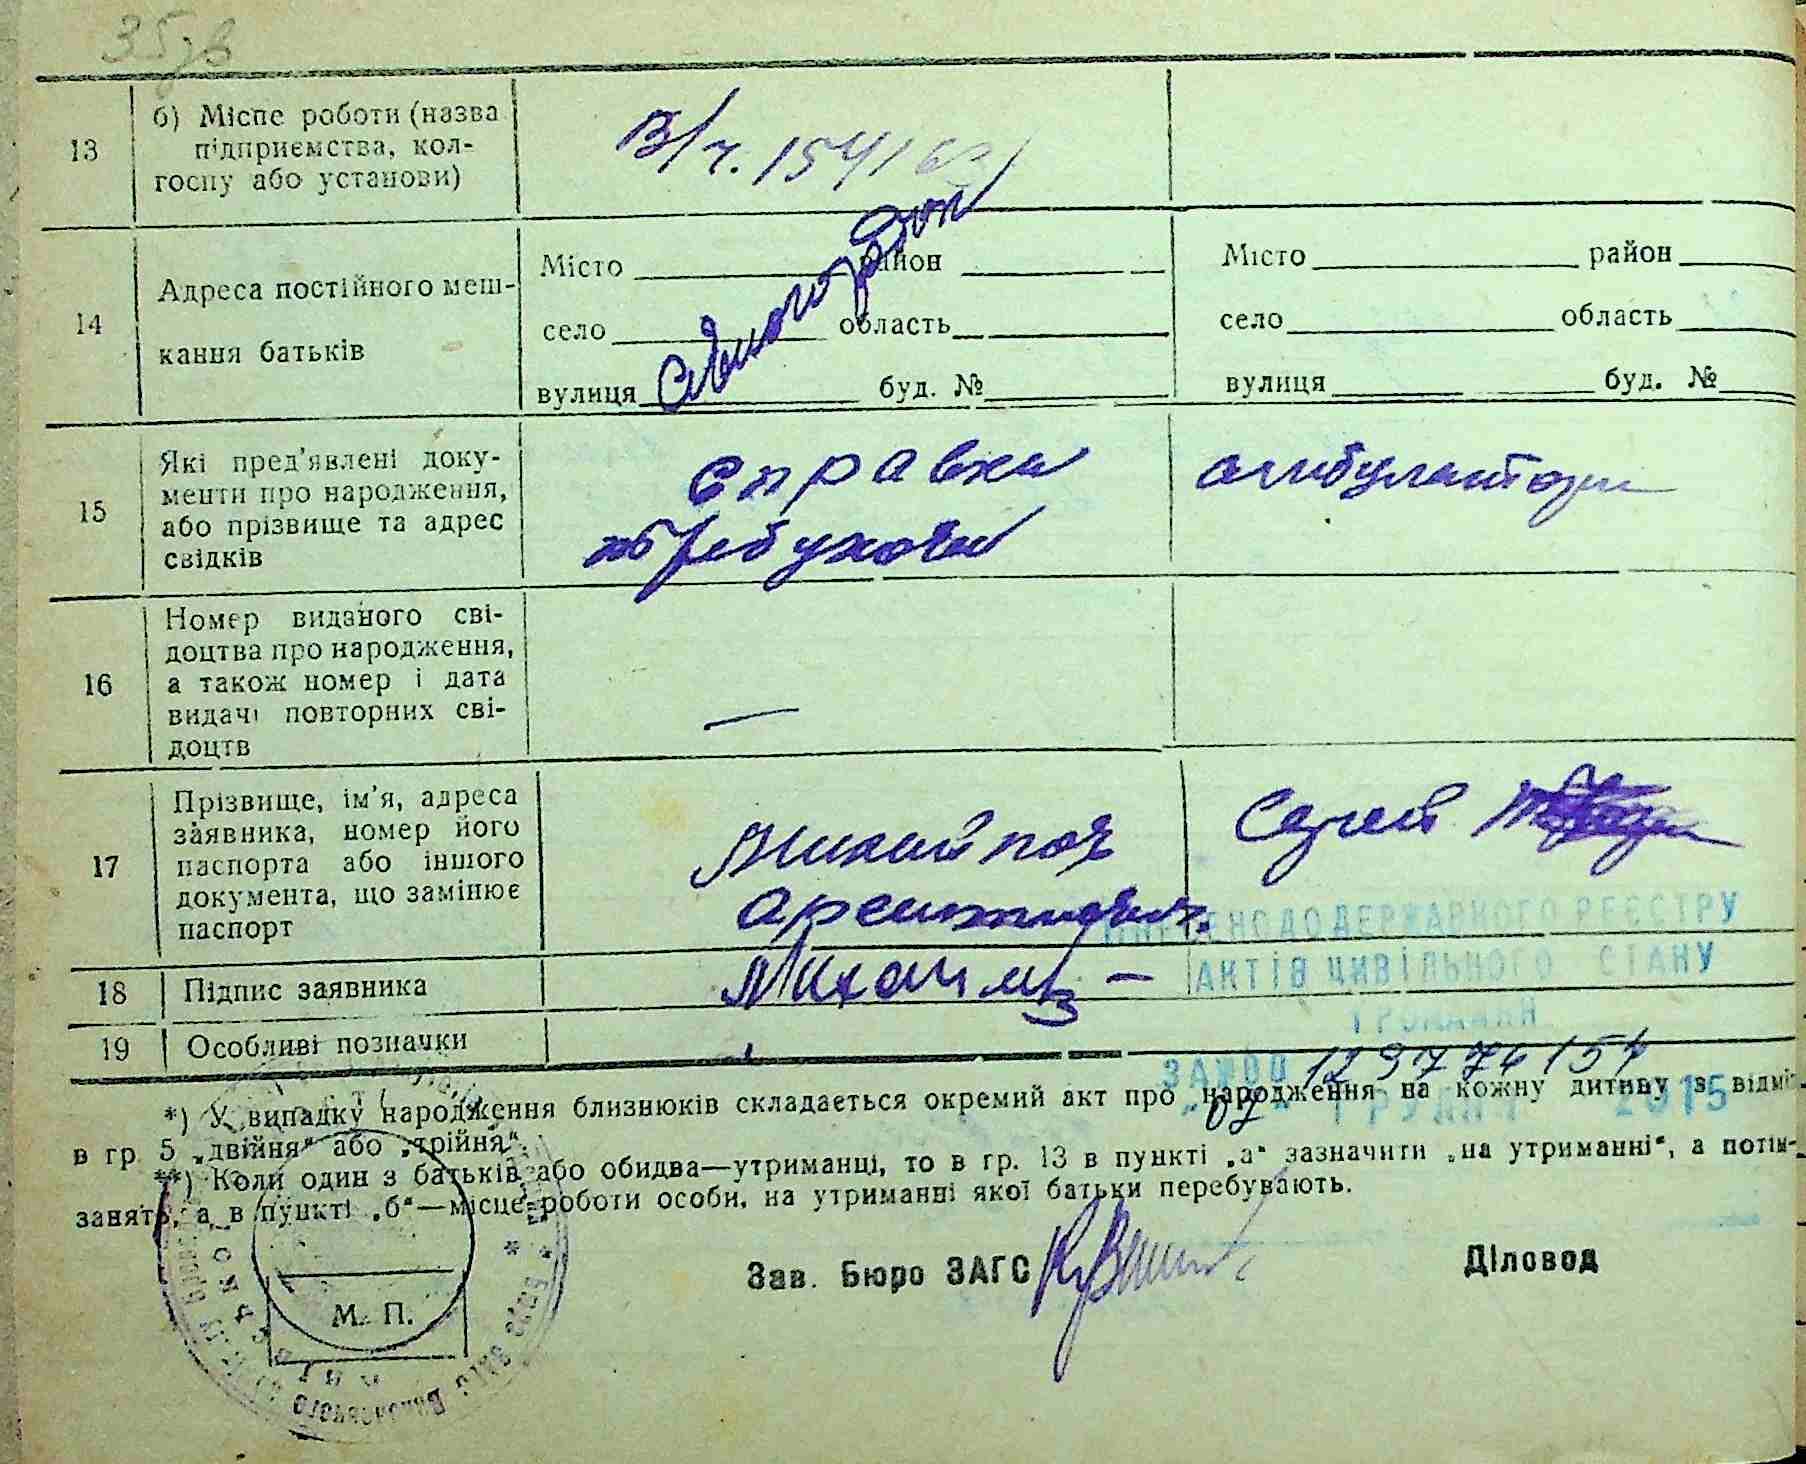 35
13
б) Місце роботи (назва
підприємства, кол-
госпу або установи)
В/ч. 154/
14
Адреса постійного меш-
кання батьків
Місто район
село область
вулиця буд. №
Місто район
село область
вулиця буд. №
15
Які пред'явлені доку-
менти про народження,
або прізвище та адрес
свідків
Справка амбулатории
16
Номер виданого сві-
доцтва про народження,
а також номер і дата
видачі повторних сві-
доцтв
—
17
Прізвище, ім'я, адреса
заявника, номер його
паспорта або іншого
документа, що замінює
паспорт
Сергей
18
Підпис заявника
19
Особливі позначки
ДО ДЕРЖАВНОГО РЕЄСТРУ
АКТІВ ЦИВІЛЬНОГО СТАНУ
ГРОМАДЯН
*) У випадку народження близнюків складається окремий акт про народження на кожну дитину з відміт
в гр 5 „двійня“ або „трійня“.
**) Коли один з батьків або обидва—утриманці, то в гр. 13 в пункті „а“ зазначити „на утриманні“, а потім—
занять, а в пункті „б“—місце роботи особи, на утриманні якої батьки перебувають.
07 ГРУДНЯ 2015
Зав. Бюро ЗАГС
Діловод
М. П.